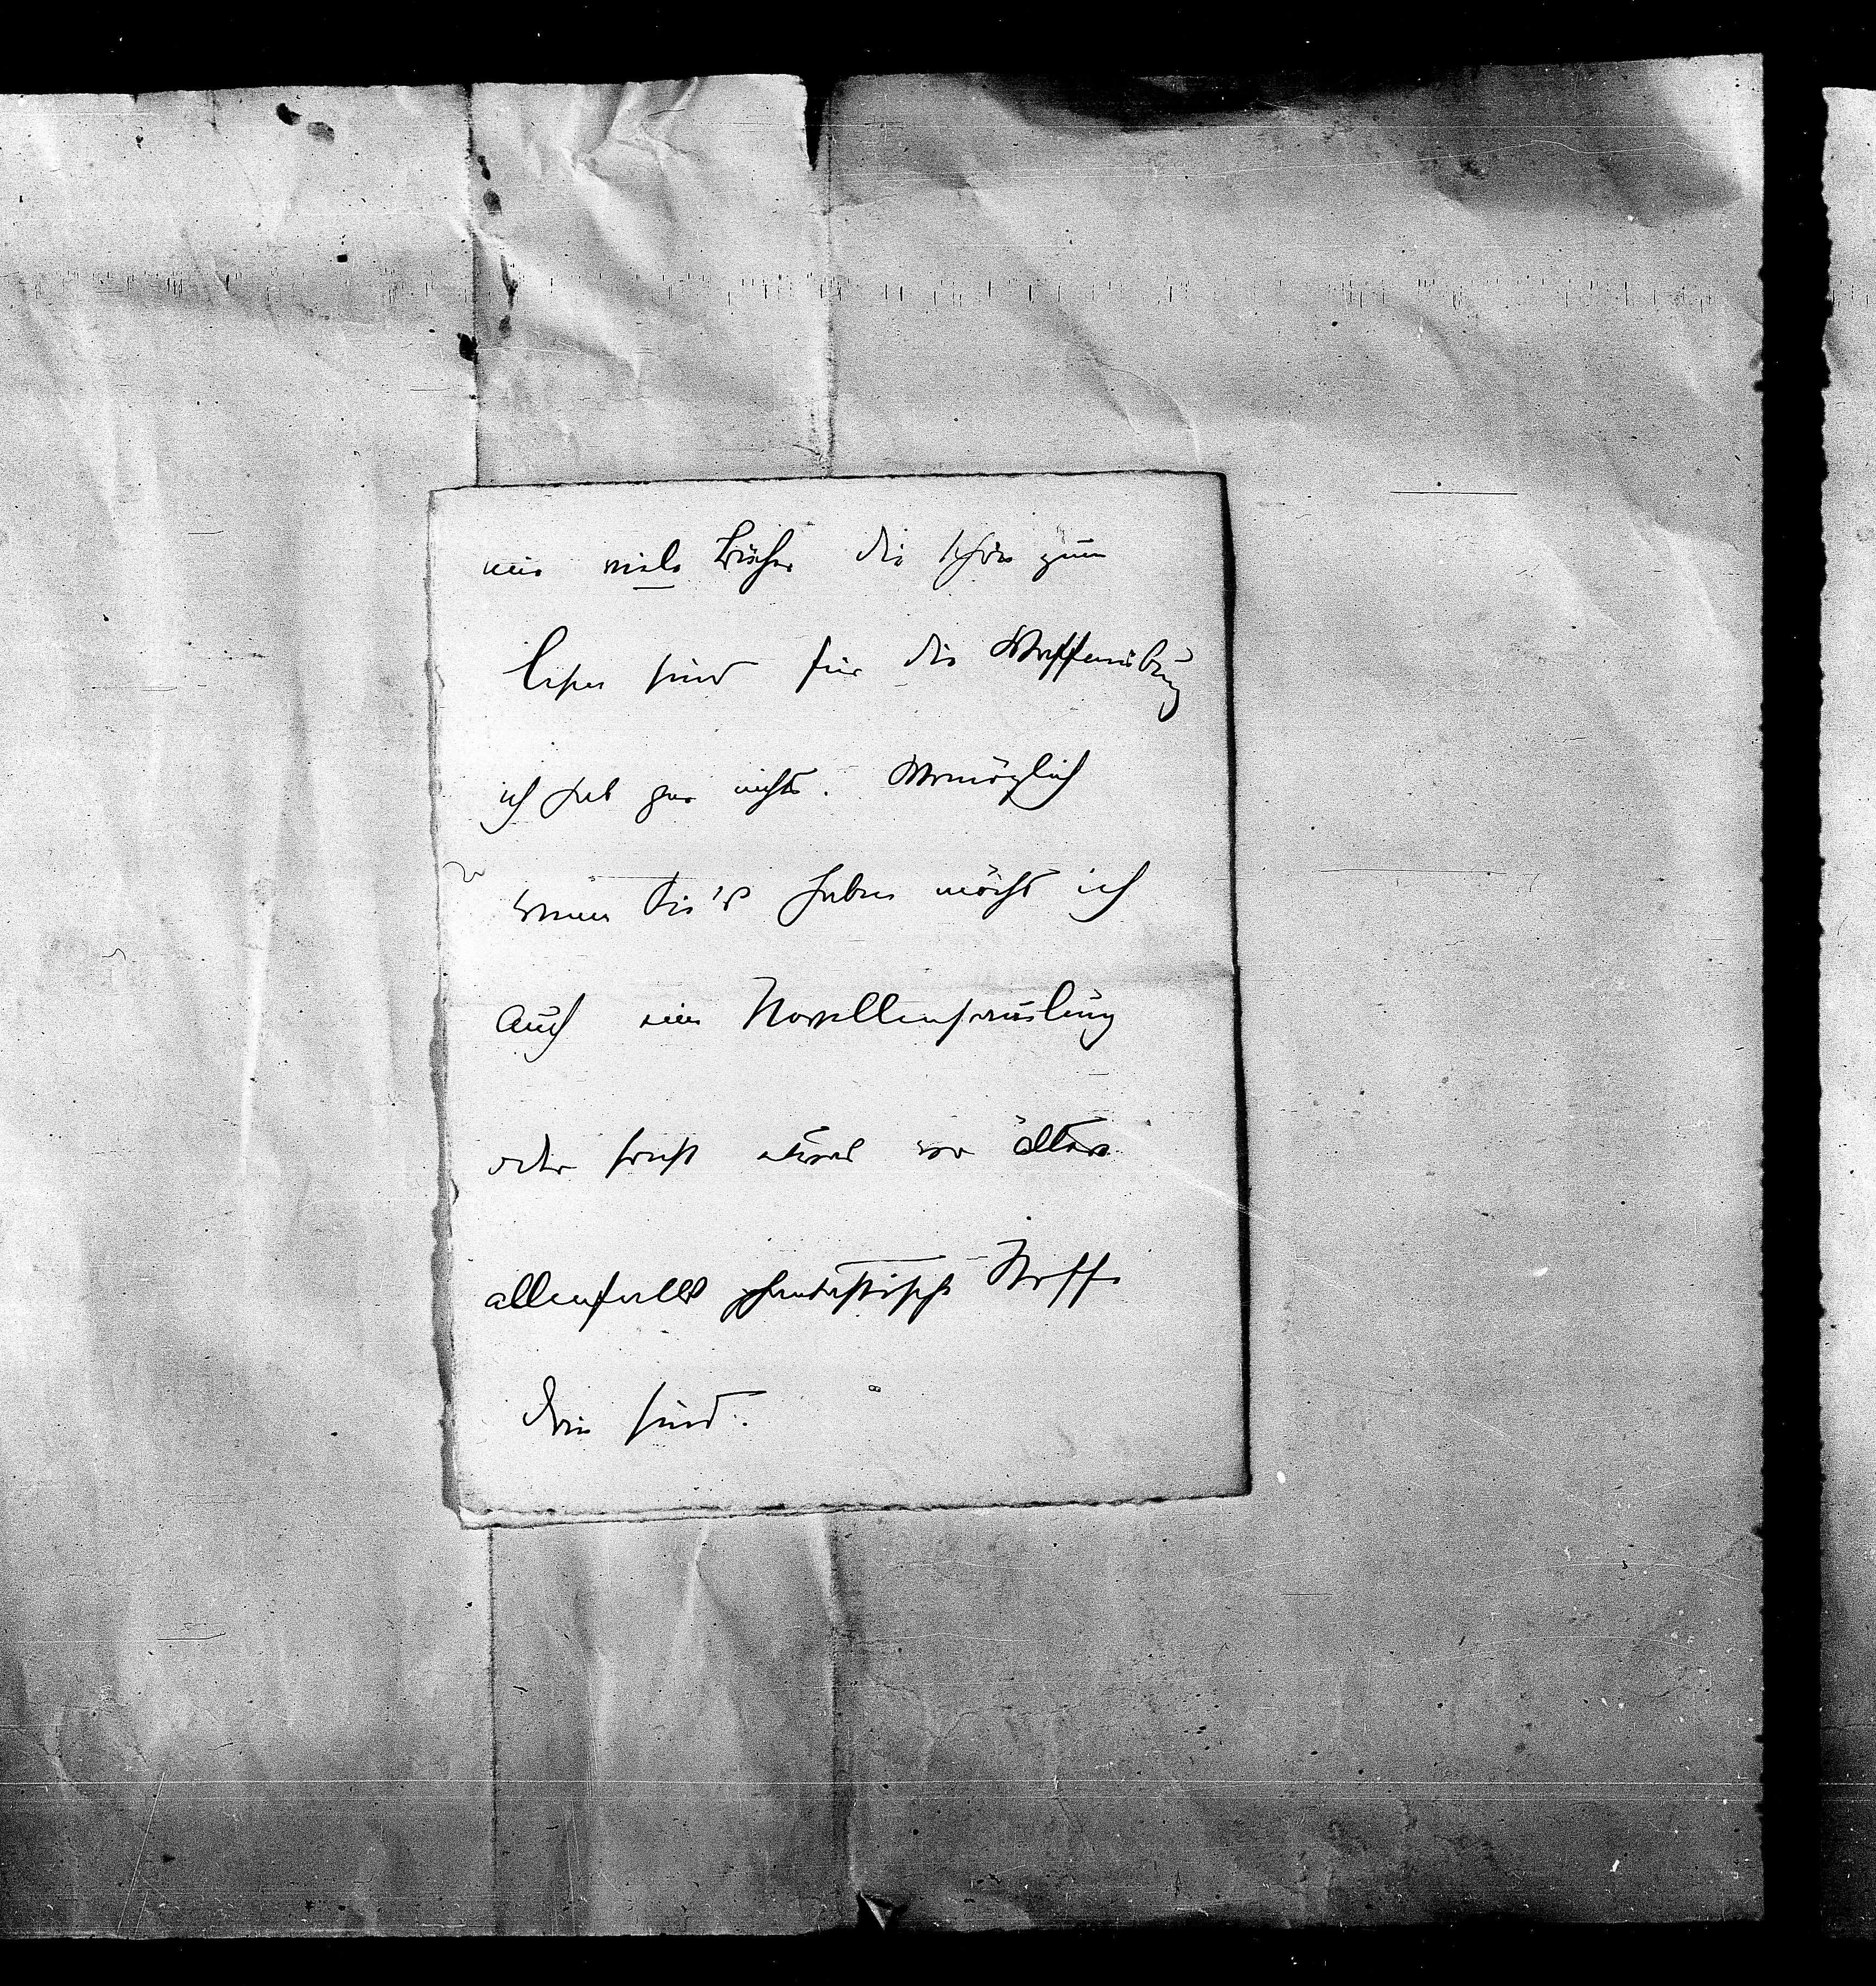 mir viele Bücher die schön zum
lesen sind für die Waffenübung
ich hab gar nichts. Womöglich
wenn Sie's haben möcht ich
auch eine Novellensamlung
oder sonst etwas wo ältere
allenfalls phantastische Stoffe
drin sind.